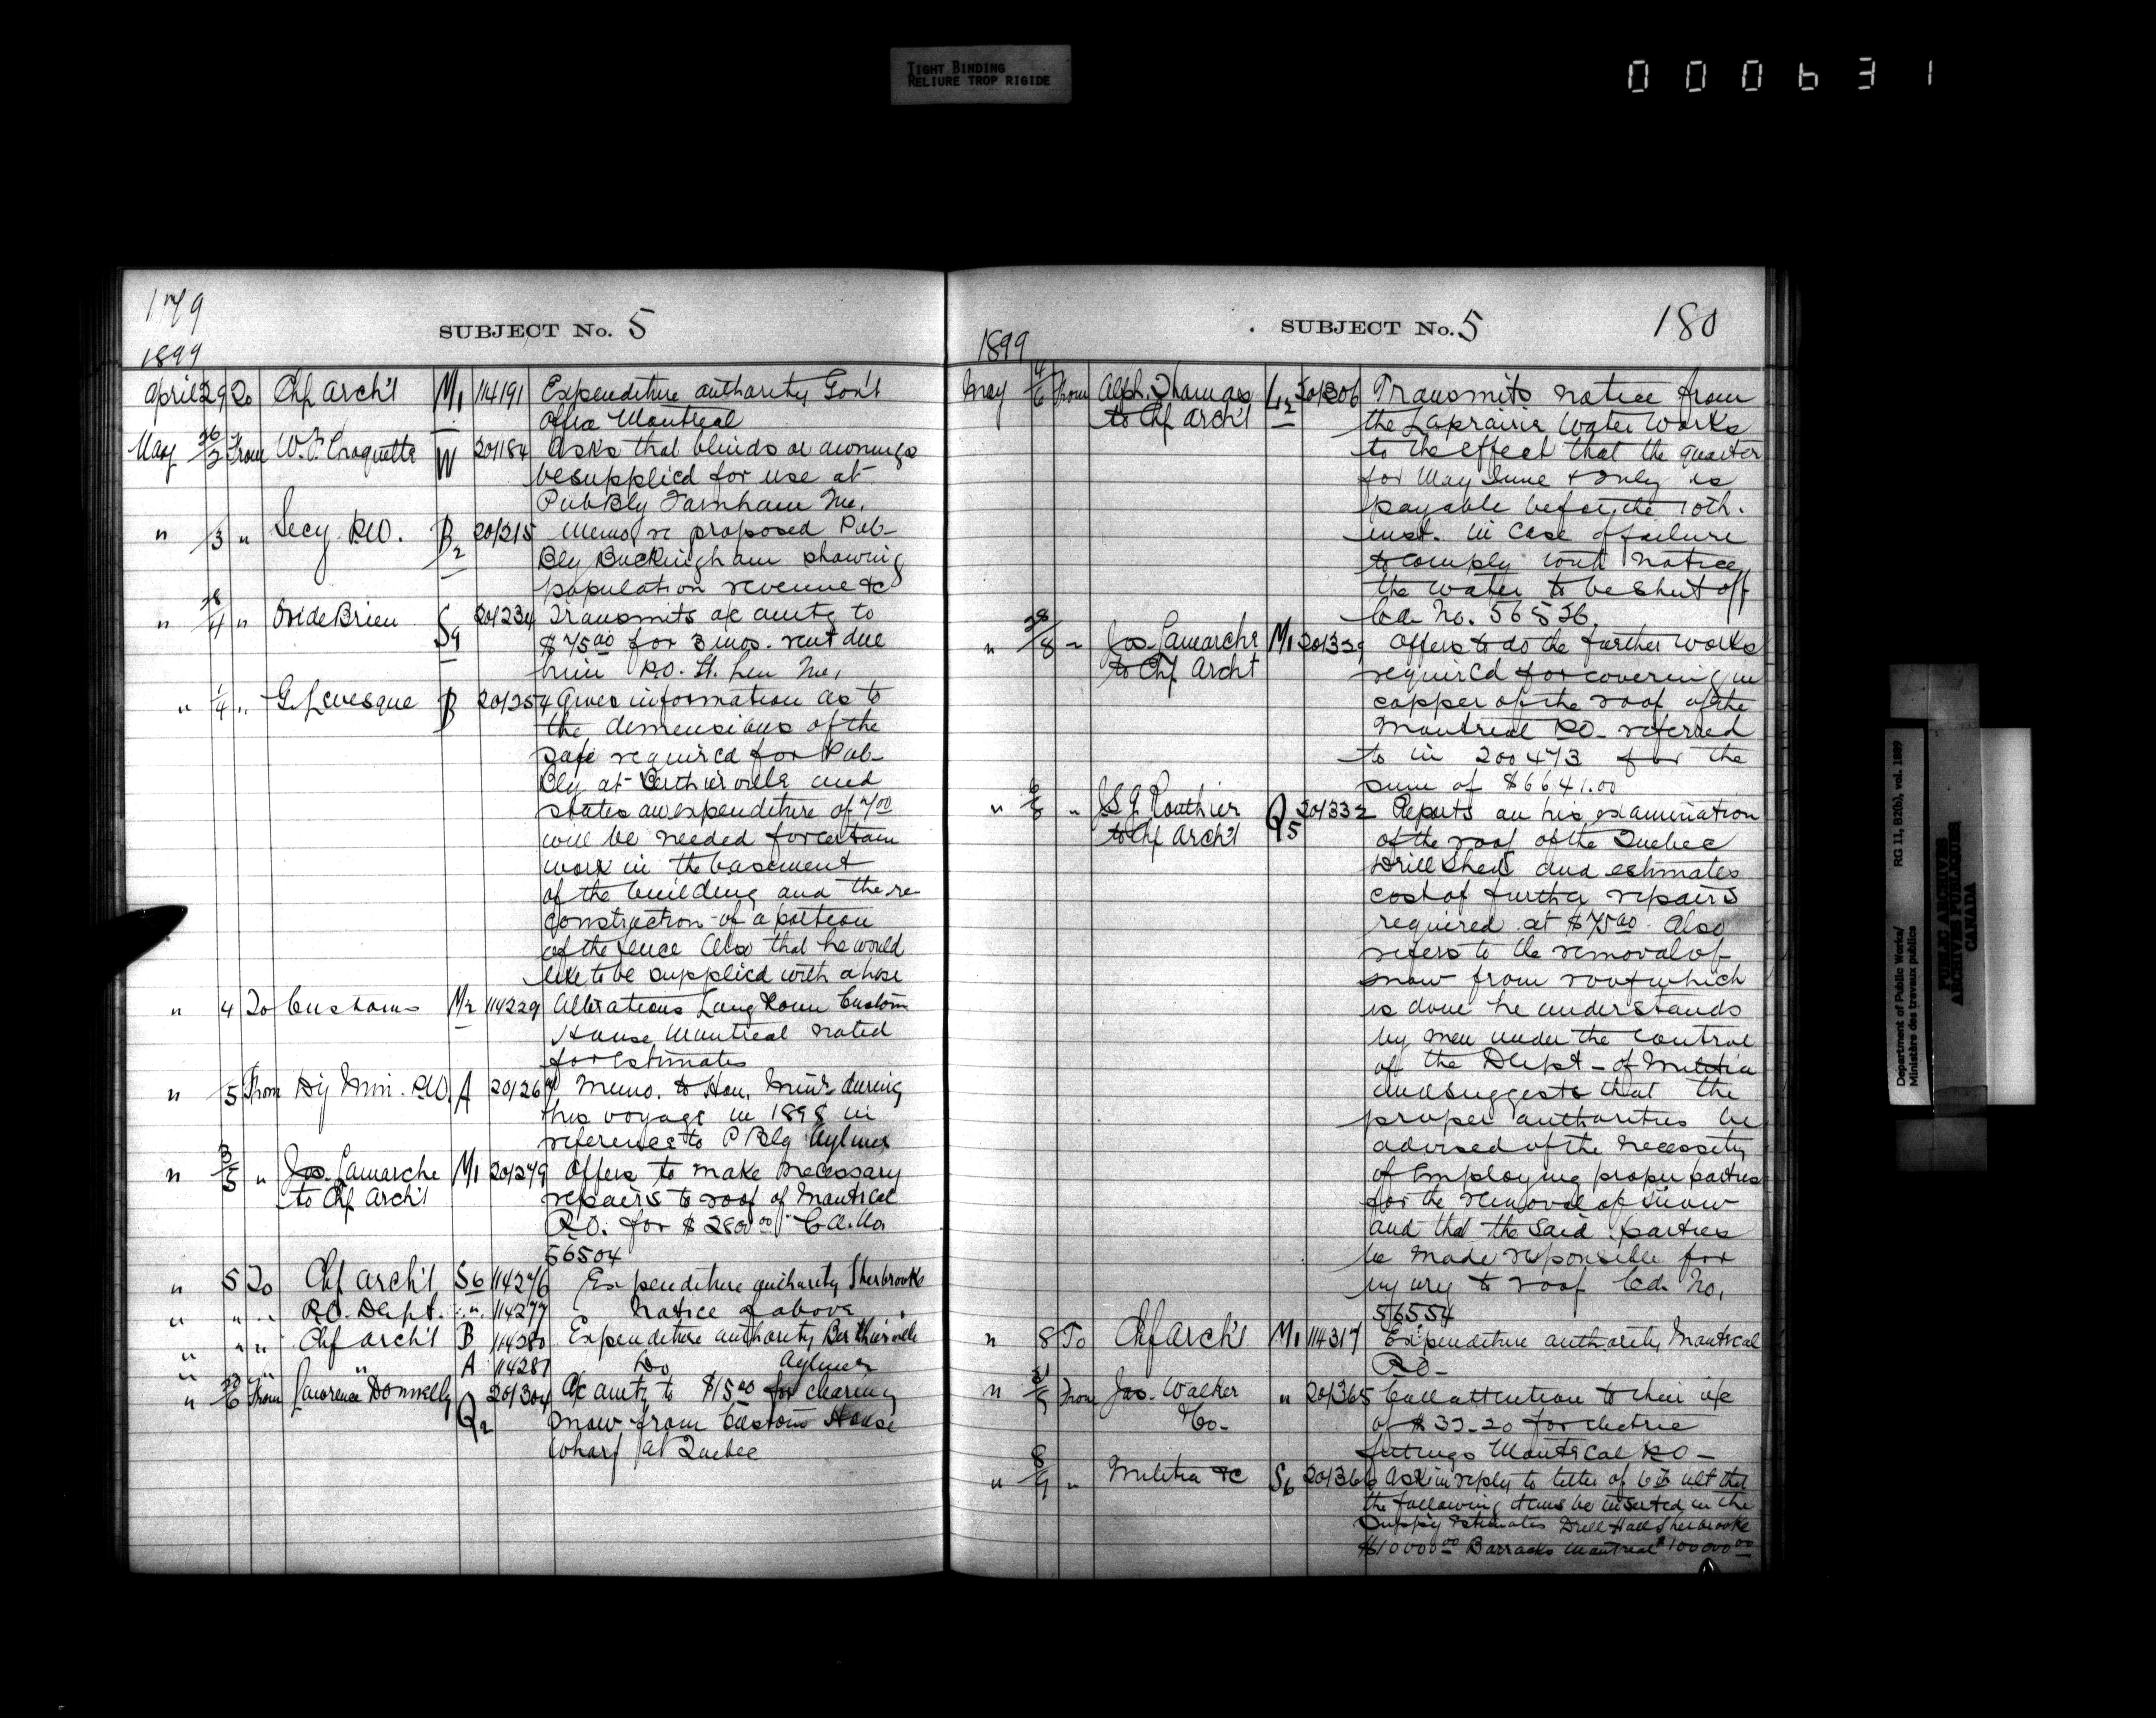 TIGHT BINDING
RELIURE TROP RIGIDE
000631
179
SUBJECT No. 5
1899
April 29 To Chf Arch't M1 114191 Expenditure authority Gov't
Office Montreal
May 26/2 From W.P. Choquette W 201184 Asks that blinds or awnings
be supplied for use at
Pub Bly Farnham Que.
" /3 " Secy P.W. B2 201215 Memo re proposed Pub-
Bly Buckingham showing
population revenue &c
" 28/4 " Brien S9 201234 Transmits a/c amtg to
$75.00 for 3 mos. rent due
him P.O. St. Lin Que,
" 1/4 " G. Levesque B 201254 Gives information as to
the dimensions of the
safe required for Pub-
Bly at Berthierville and
states an expenditure of
will be needed for certain
work in the basement
of the building and the re
construction of a portion
of the fence Also that he would
like to be supplied with a hose
" 4 To Customs M2 114229 Alterations Long Room Custom
House Montreal noted
for estimates
" /5 From Dy Min. P.W. A 20126 Memo. to Hon. Minr during
his voyage in 1898 in
reference to P Blg Aylmer
" 3/5 " Jos. Lamarche M1 201279 Offers to make necessary
to Chf Arch't repairs to roof of Montreal
P.O. for $280.00 Cd. No
56504
" 5 To Chf Arch't S6 114276 Expenditure authority Sherbrooke
" " " P.O. Dept. " 114277 Notice of above
" " " Chf Arch't B 114280 Expenditure authority Berthierville
" " " " A 114281 Do Aylmer
" 30/6 From Lawrence Donnelly Q2 201304 A/c amtg to $15.00 for clearing
snow from Custom House
Wharf at Quebec
SUBJECT No. 5
180
1899
May 4/6 From Alph. Thomas L12 201306 Transmits notice from
to Chf Arch't the Laprairie Water Works
to the effect that the quarter
for May June & July is
payable before the 10th.
inst. in case of failure
to comply with notice
the water to be shut off
Cd. No. 56526.
" 28/8 " Jos. Lamarche M1 201329 Offers to do the further works
to Chf Archt required for covering in
copper of the roof of the
Montreal P.O. referred
to in 200473 for the
sum of $6641.00
" 6/8 " J.S.G. Routhier Q5 201332 Reports on his examination
to Chf Arch't of the roof of the Quebec
Drill Shed and estimates
cost of further repairs
required at $75.00. Also
refers to the removal of
snow from roof which
is done he understands
by men under the control
of the Dept- of Militia
and suggests that the
proper authorities be
advised of the necessity
of employing proper parties
for the removal of snow
and that the said parties
be made responsible for
injury to roof Cd. No.
56554
" 8 To Chf Arch't M1 114317 Expenditure authority Montreal
P.O-
" From Jas. Walker " 201365 Call attention to their a/c
Co- of $33.20 for electric
fittings Montreal P.O-
" 8/9 " Militia &c S6 20136 Ask in reply to letter of 6th ult that
the following items be inserted in the
Supply Estimates Drill Hall Sherbrooke
$10000.00 Barracks Montreal $100000.00
Department of Public Works/
Ministère des travaux publics
RG 11, B2(b), vol. 1889
PUBLIC ARCHIVES
ARCHIVES PUBLIQUES
CANADA